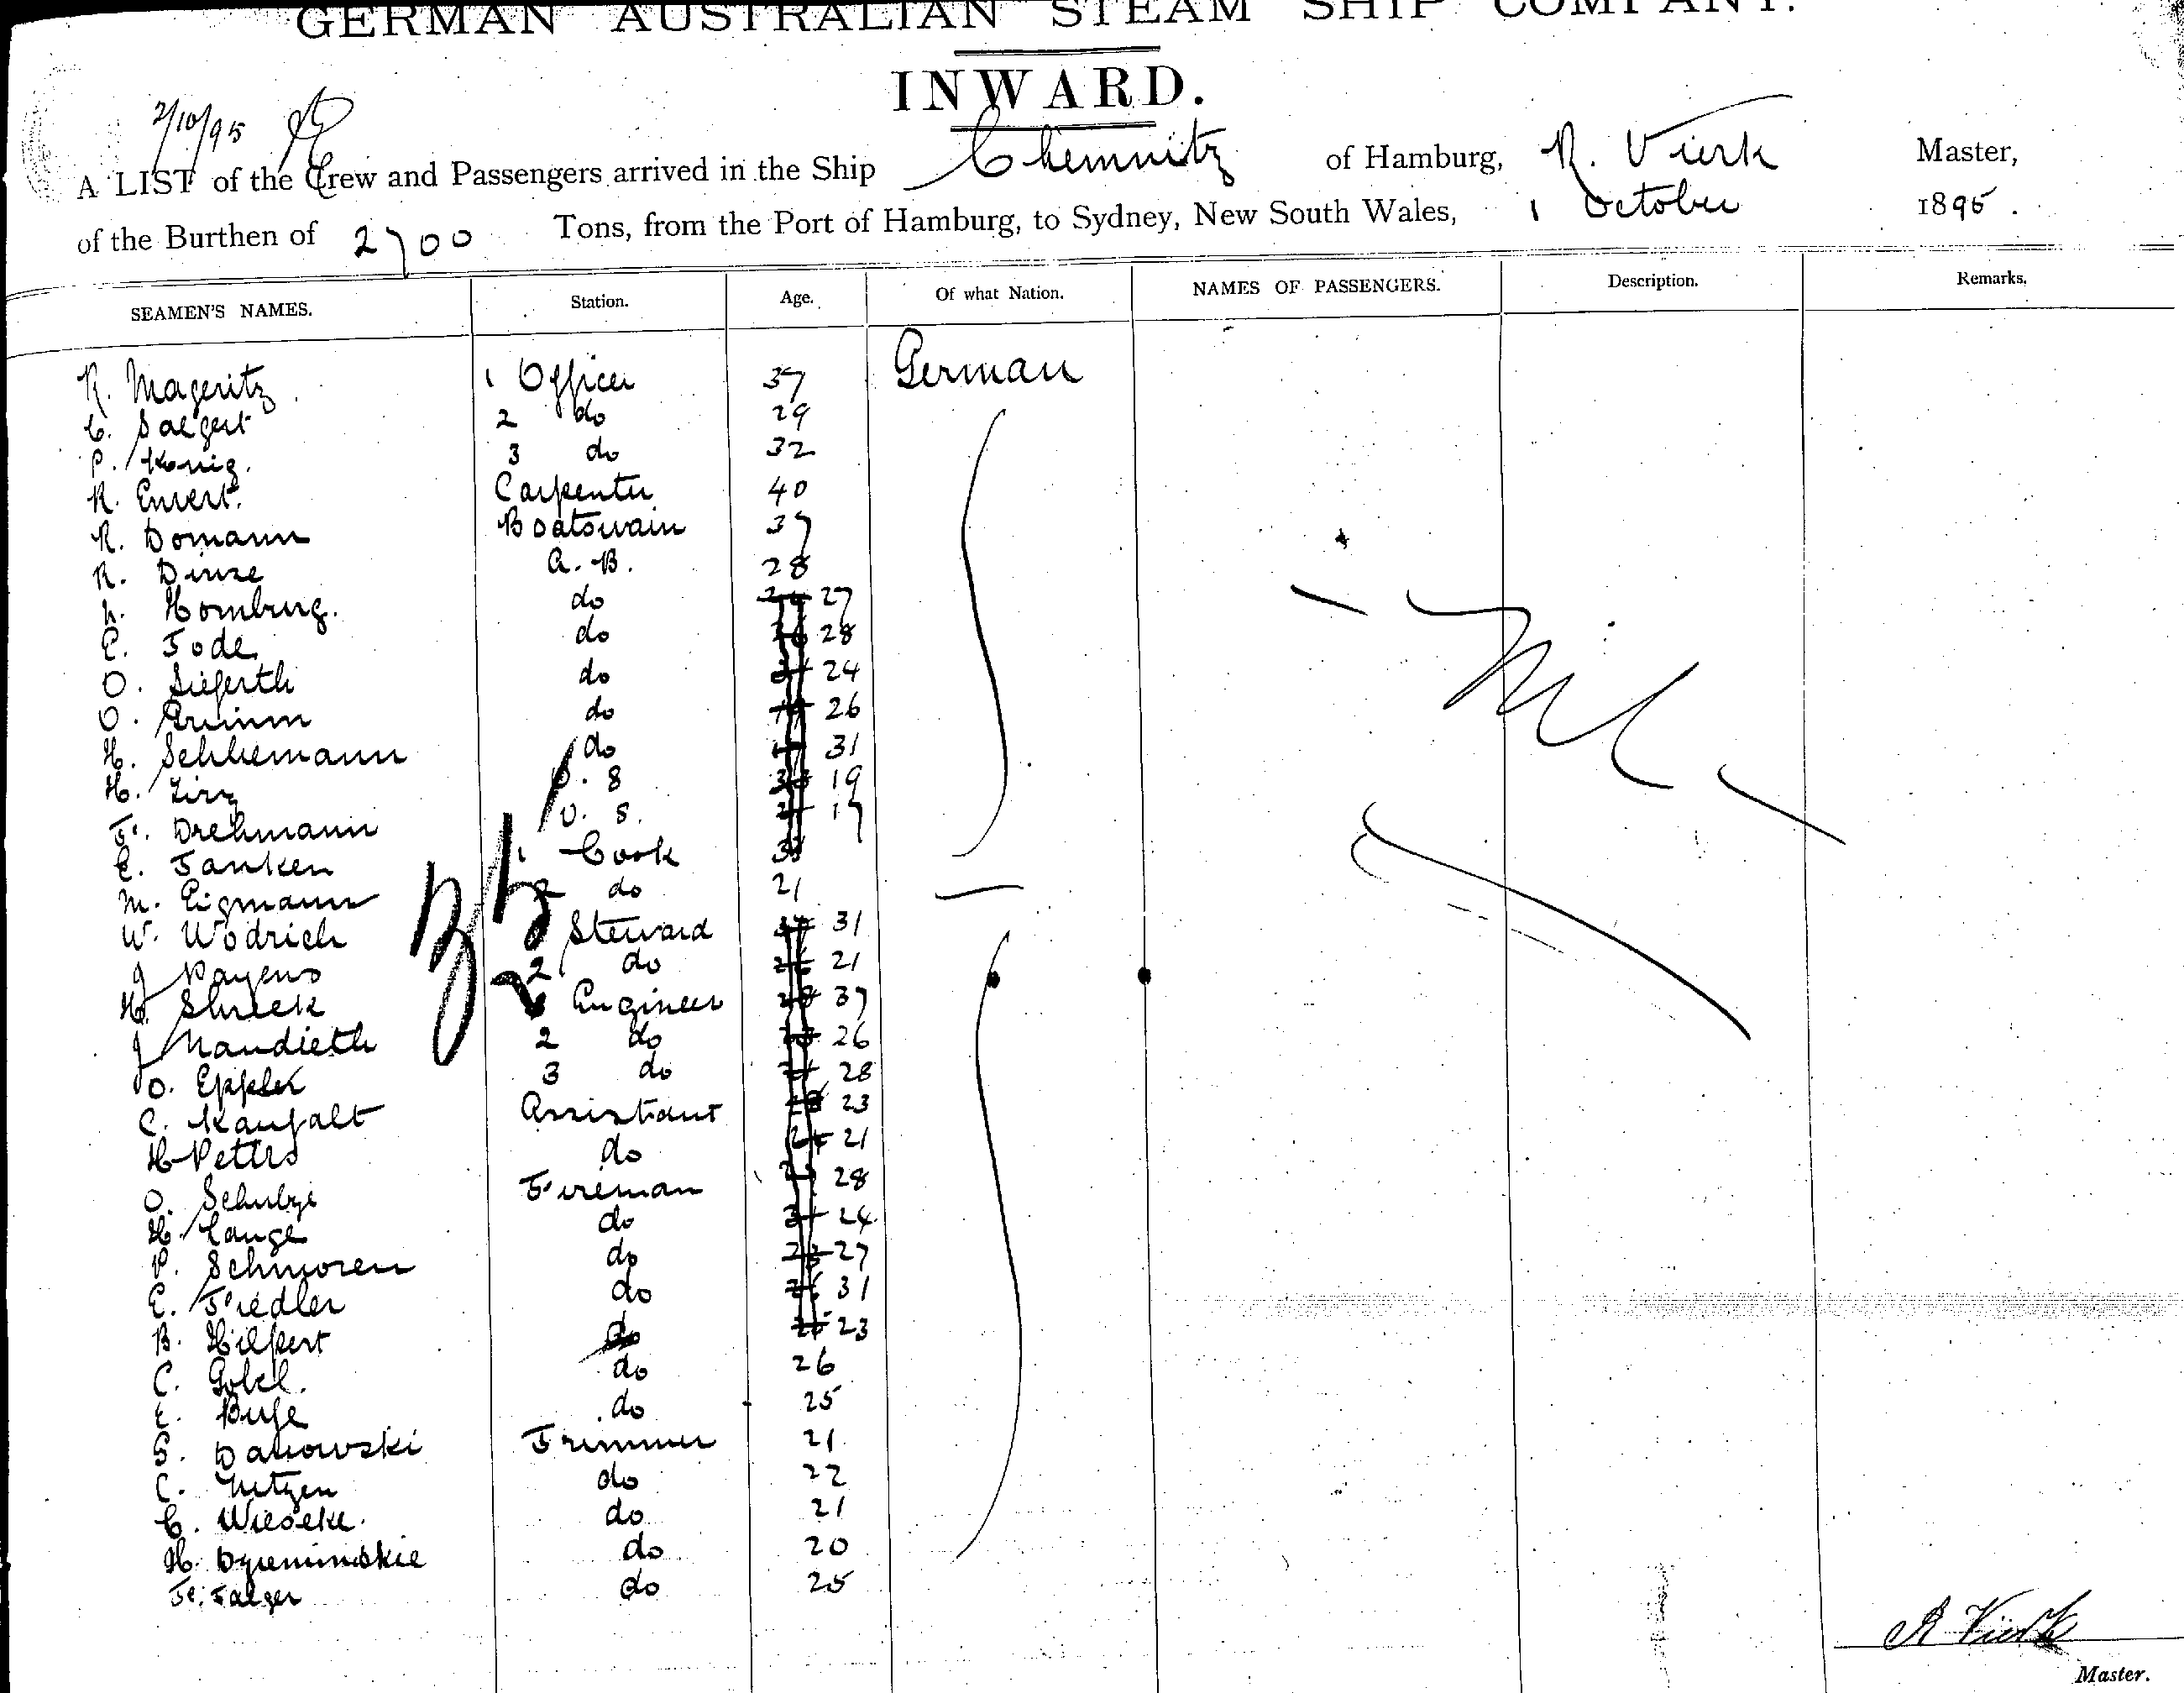 GERMAN AUSTRALIAN STEAM SHIP COMPANY.
INWARD.
2/10/95
A LIST of the Crew and Passengers arrived in the Ship Chemnitz of Hamburg, R. Vierk Master,
of the Burthen of 2700 Tons, from the Port of Hamburg, to Sydney, New South Wales, 1 October 1895.
SEAMEN'S NAMES. Station. Age. Of what Nation. NAMES OF PASSENGERS. Description. Remarks.
R. Mageritz 1 Officer 37 German
C. Saegert 2 do 29
P. König. 3 do 32
R. Emert. Carpenter 40
R. Domann Boatswain 37
R. Dinse A.B. 28
h. Homburg. do 27
E. Tode do 28
O. Siegerth do 24
O. do 26
H. Schliemann do 31
H. Zirz O.S 19
Fr. Drehmann O.S. 17
E. Janken 1 Cook
M. Eigmann 2 do 21
W. Wodrich Steward 31
J Payens 2 do 21
H. Shreck Engineer 37
J Naudieth 2 do 26
O. Eppler 3 do 28
C. Kaufalt Assistant 23
H Petters do 21
O. Schulze Fireman 28
H. Lange do 24
P. Schmoren do 27
E. Fiedler do 31
B. Hilpert do 23
C. Gobel. do 26
E. Buse do 25
S. Danowski Trimmer 21
C. do 22
C. Wieseke. do 21
H. do 20
Fr. Jaeger do 25
Nil
R Vierk
Master.